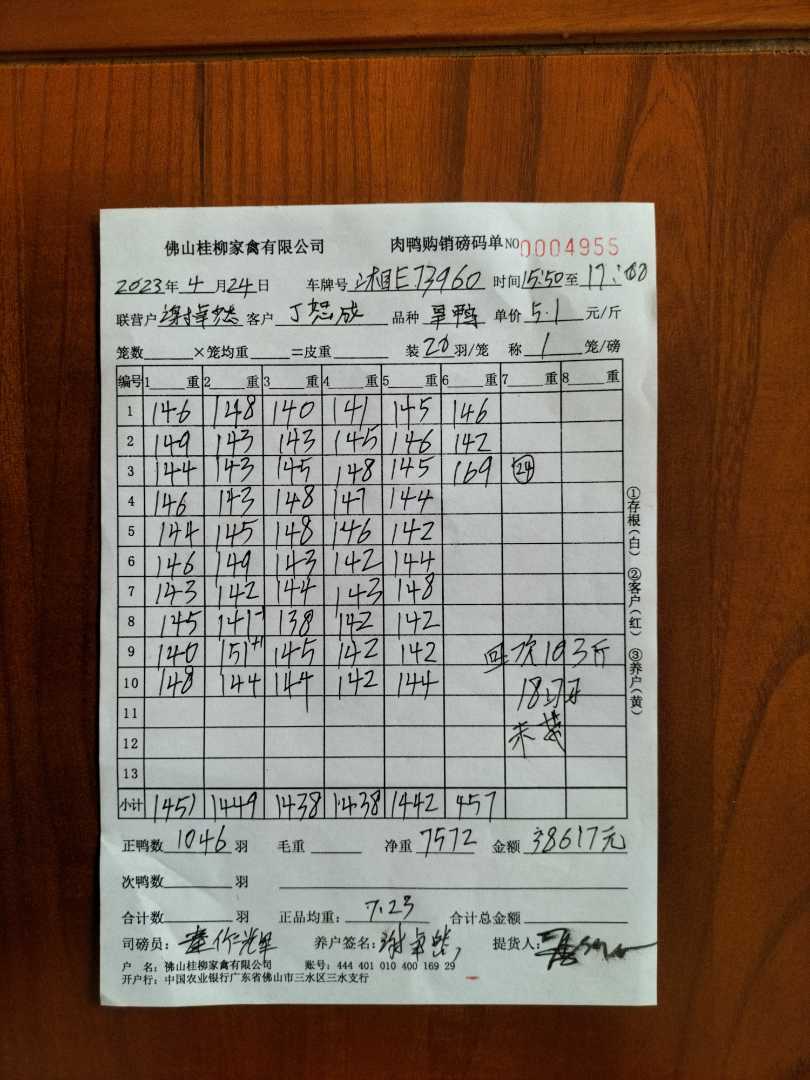 佛山桂柳家禽有限公司 肉鸭购销磅码单 NO 0004955
2023年 4 月 24 日 车牌号 湘E73960 时间 15:50 至 17:00
联营户 客户 丁 成 品种 鸭 单价 5.1 元/斤
笼数 ×笼均重 =皮重 装 20 羽/笼 称 1 笼/磅
编号 1 重 2 重 3 重 4 重 5 重 6 重 7 重 8 重
1 146 148 140 141 145 146
2 149 143 143 145 146 142
3 144 143 145 148 145 169 24
4 146 143 148 147 144
5 144 145 148 146 142
6 146 149 143 142 144
7 143 142 144 143 148
8 145 141- 138 142 142
9 140 151+1 145 142 142 回次103斤
10 148 144 144 142 144 18
11 未
12
13
小计 1451 1449 1438 1438 1442 457
正鸭数 1046 羽 毛重 净重 7572 金额 38617元
次鸭数 羽
合计数 羽 正品均重: 7.23 合计总金额
司磅员: 养户签名: 提货人:
户 名: 佛山桂柳家禽有限公司 账号: 444 401 010 400 169 29
开户行: 中国农业银行广东省佛山市三水区三水支行
①存根(白) ②客户(红) ③养户(黄)